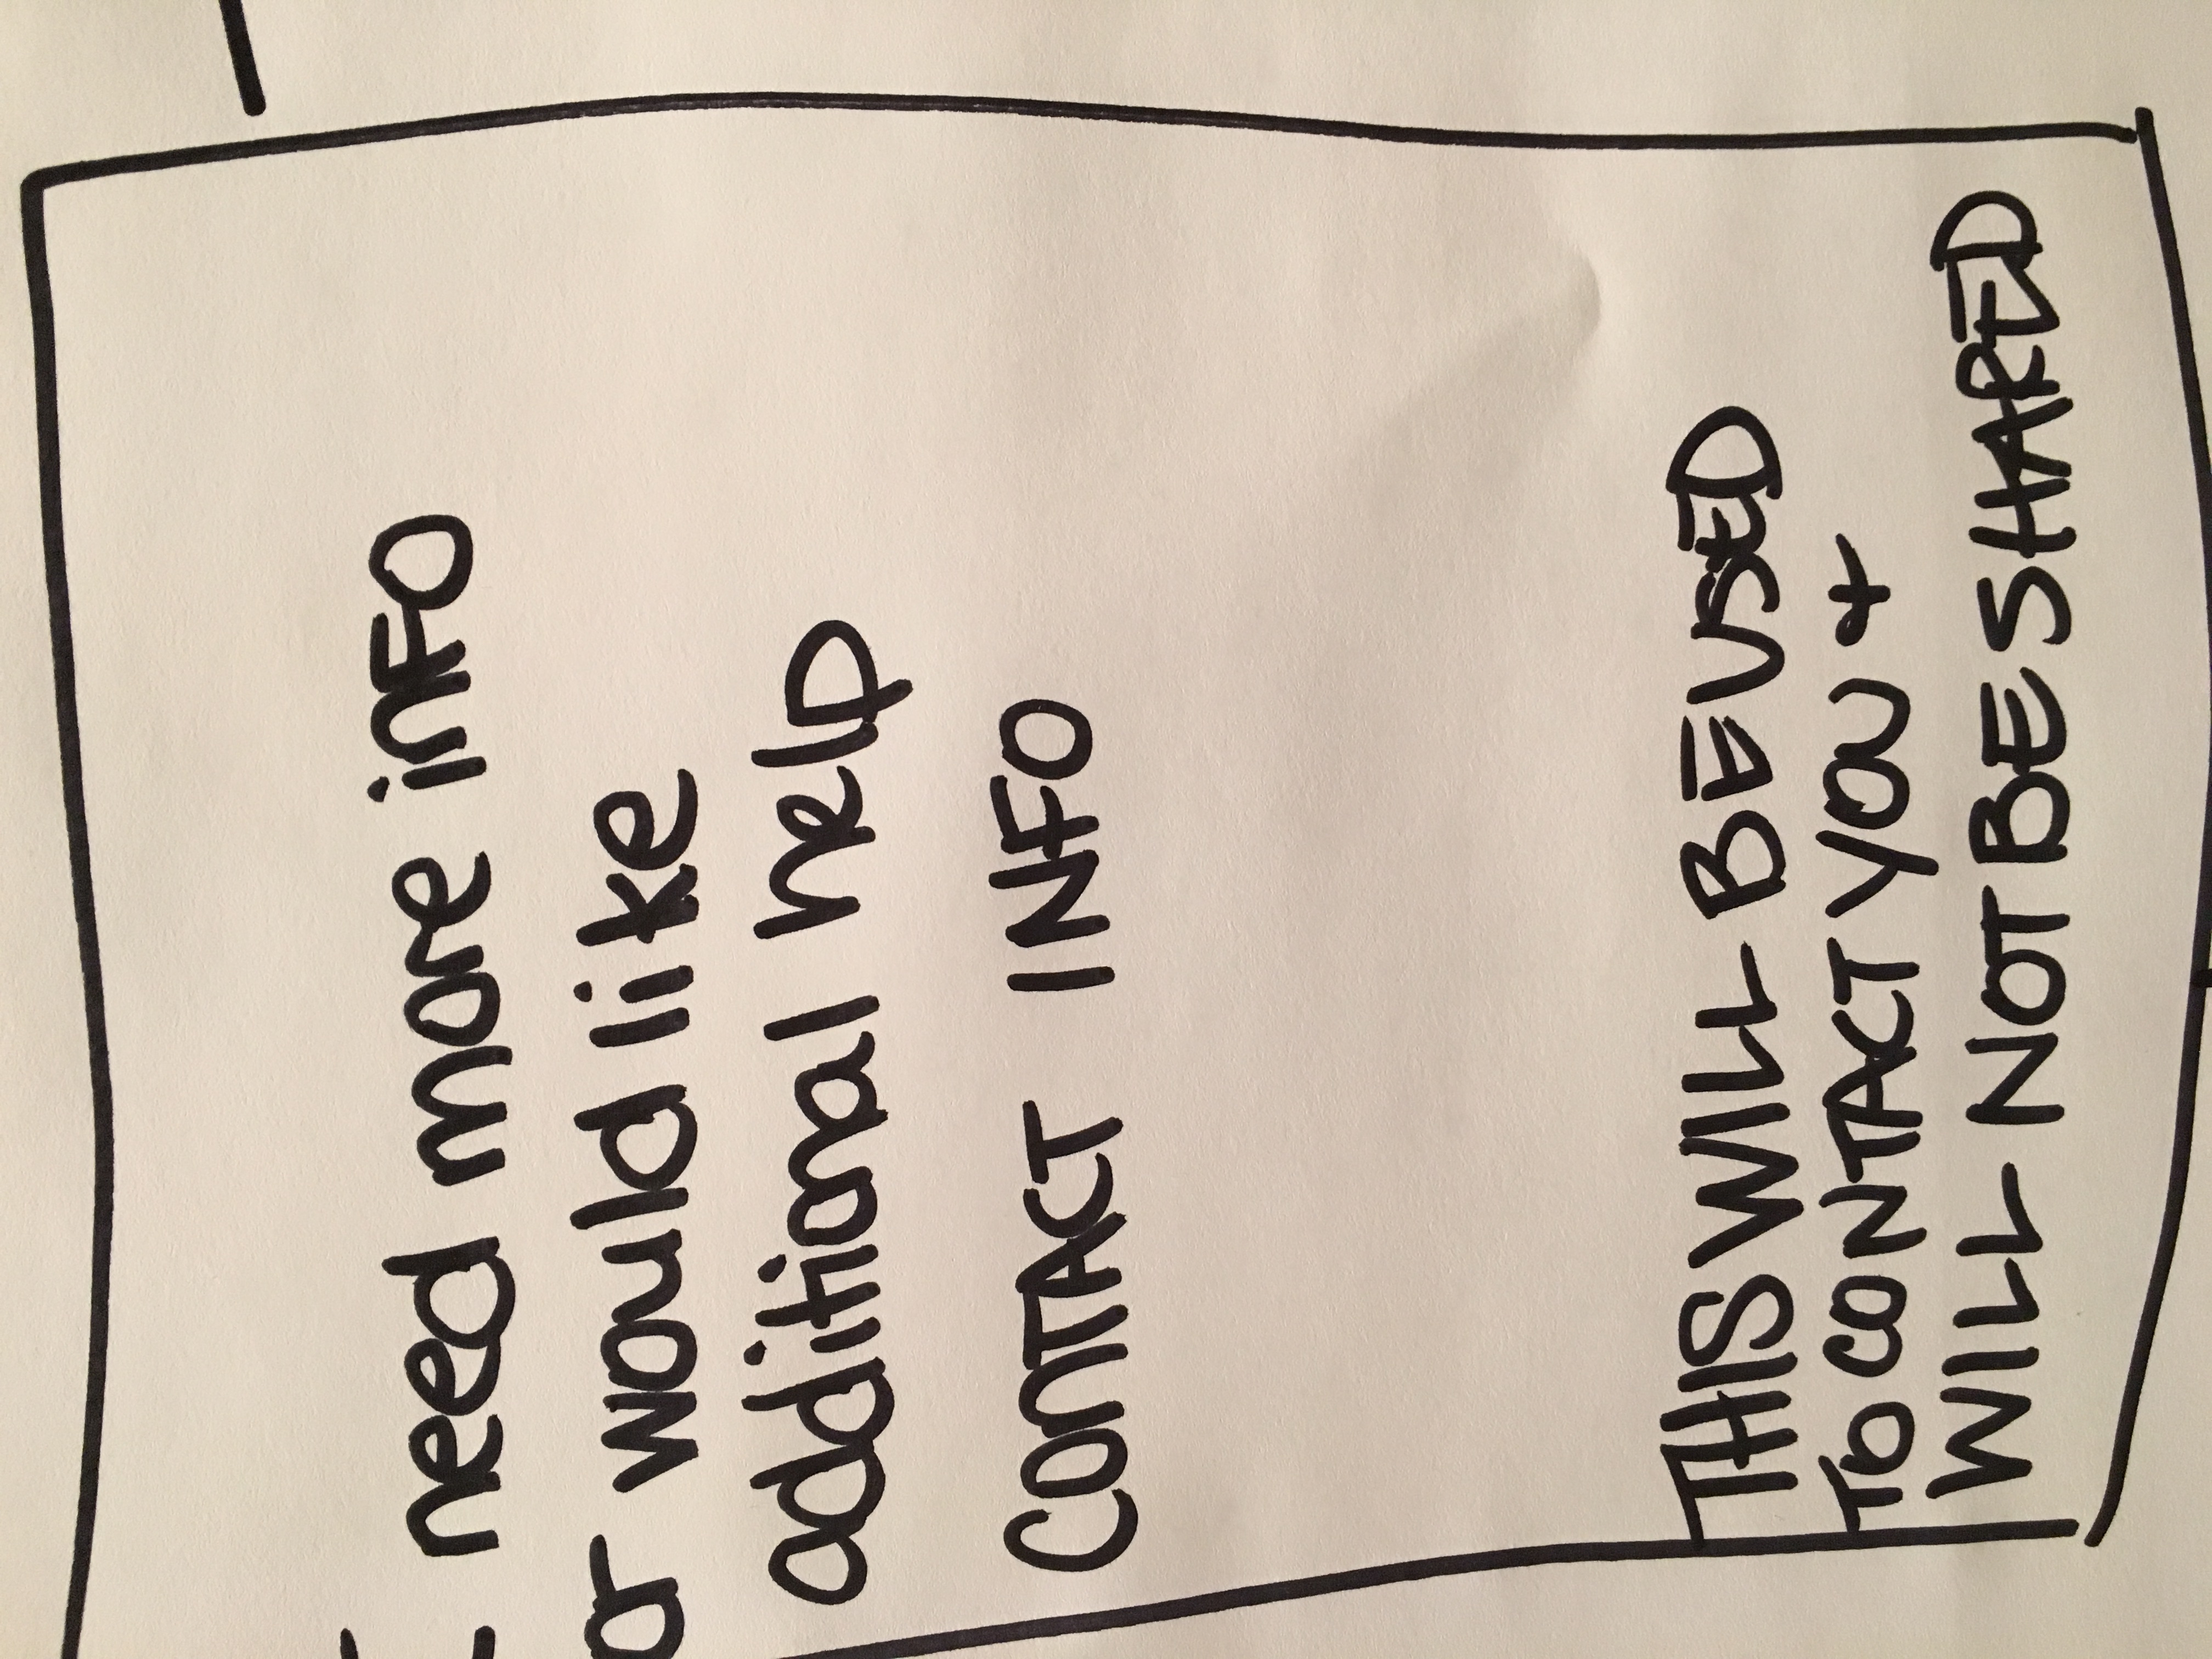 need more inFO
or would like
additional help
CONTACT INFO
THIS WILL BE USED
TO CONTACT YOU +
WILL NOT BE SHARED